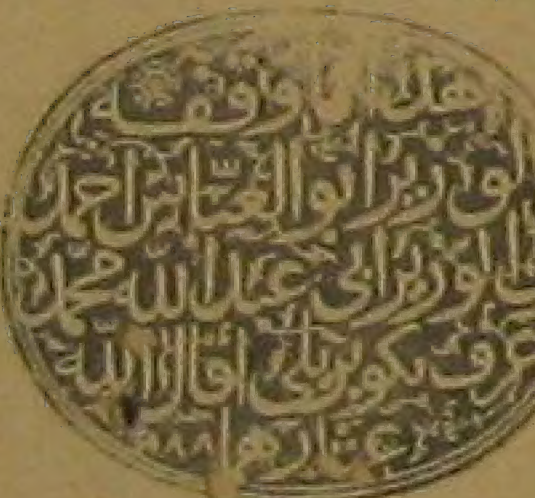 هذا ما وقفه
الوزير ابو العبّاس احمد
بن الوزير ابي عبد الله محمّد
عرف بكوبريلي اقال الله
عثارهما ١٠٨٨